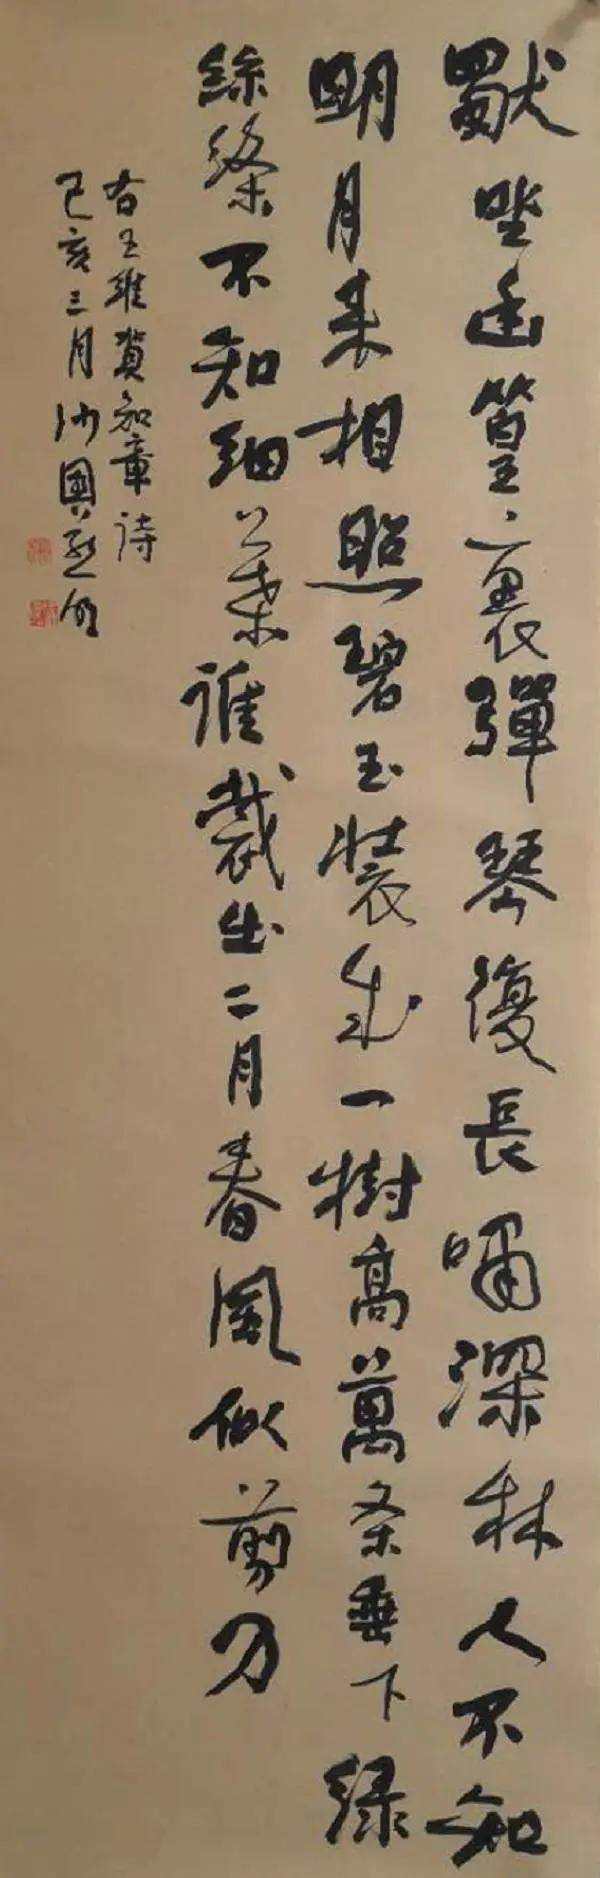 獸坐幽篁裏彈琴復長嘯深林人不知
明月来相照碧玉装成一樹高萬条垂下緑
絲絛不知細葉谁裁出二月春風似剪刀
右王維賀知章诗
己亥三月沙國